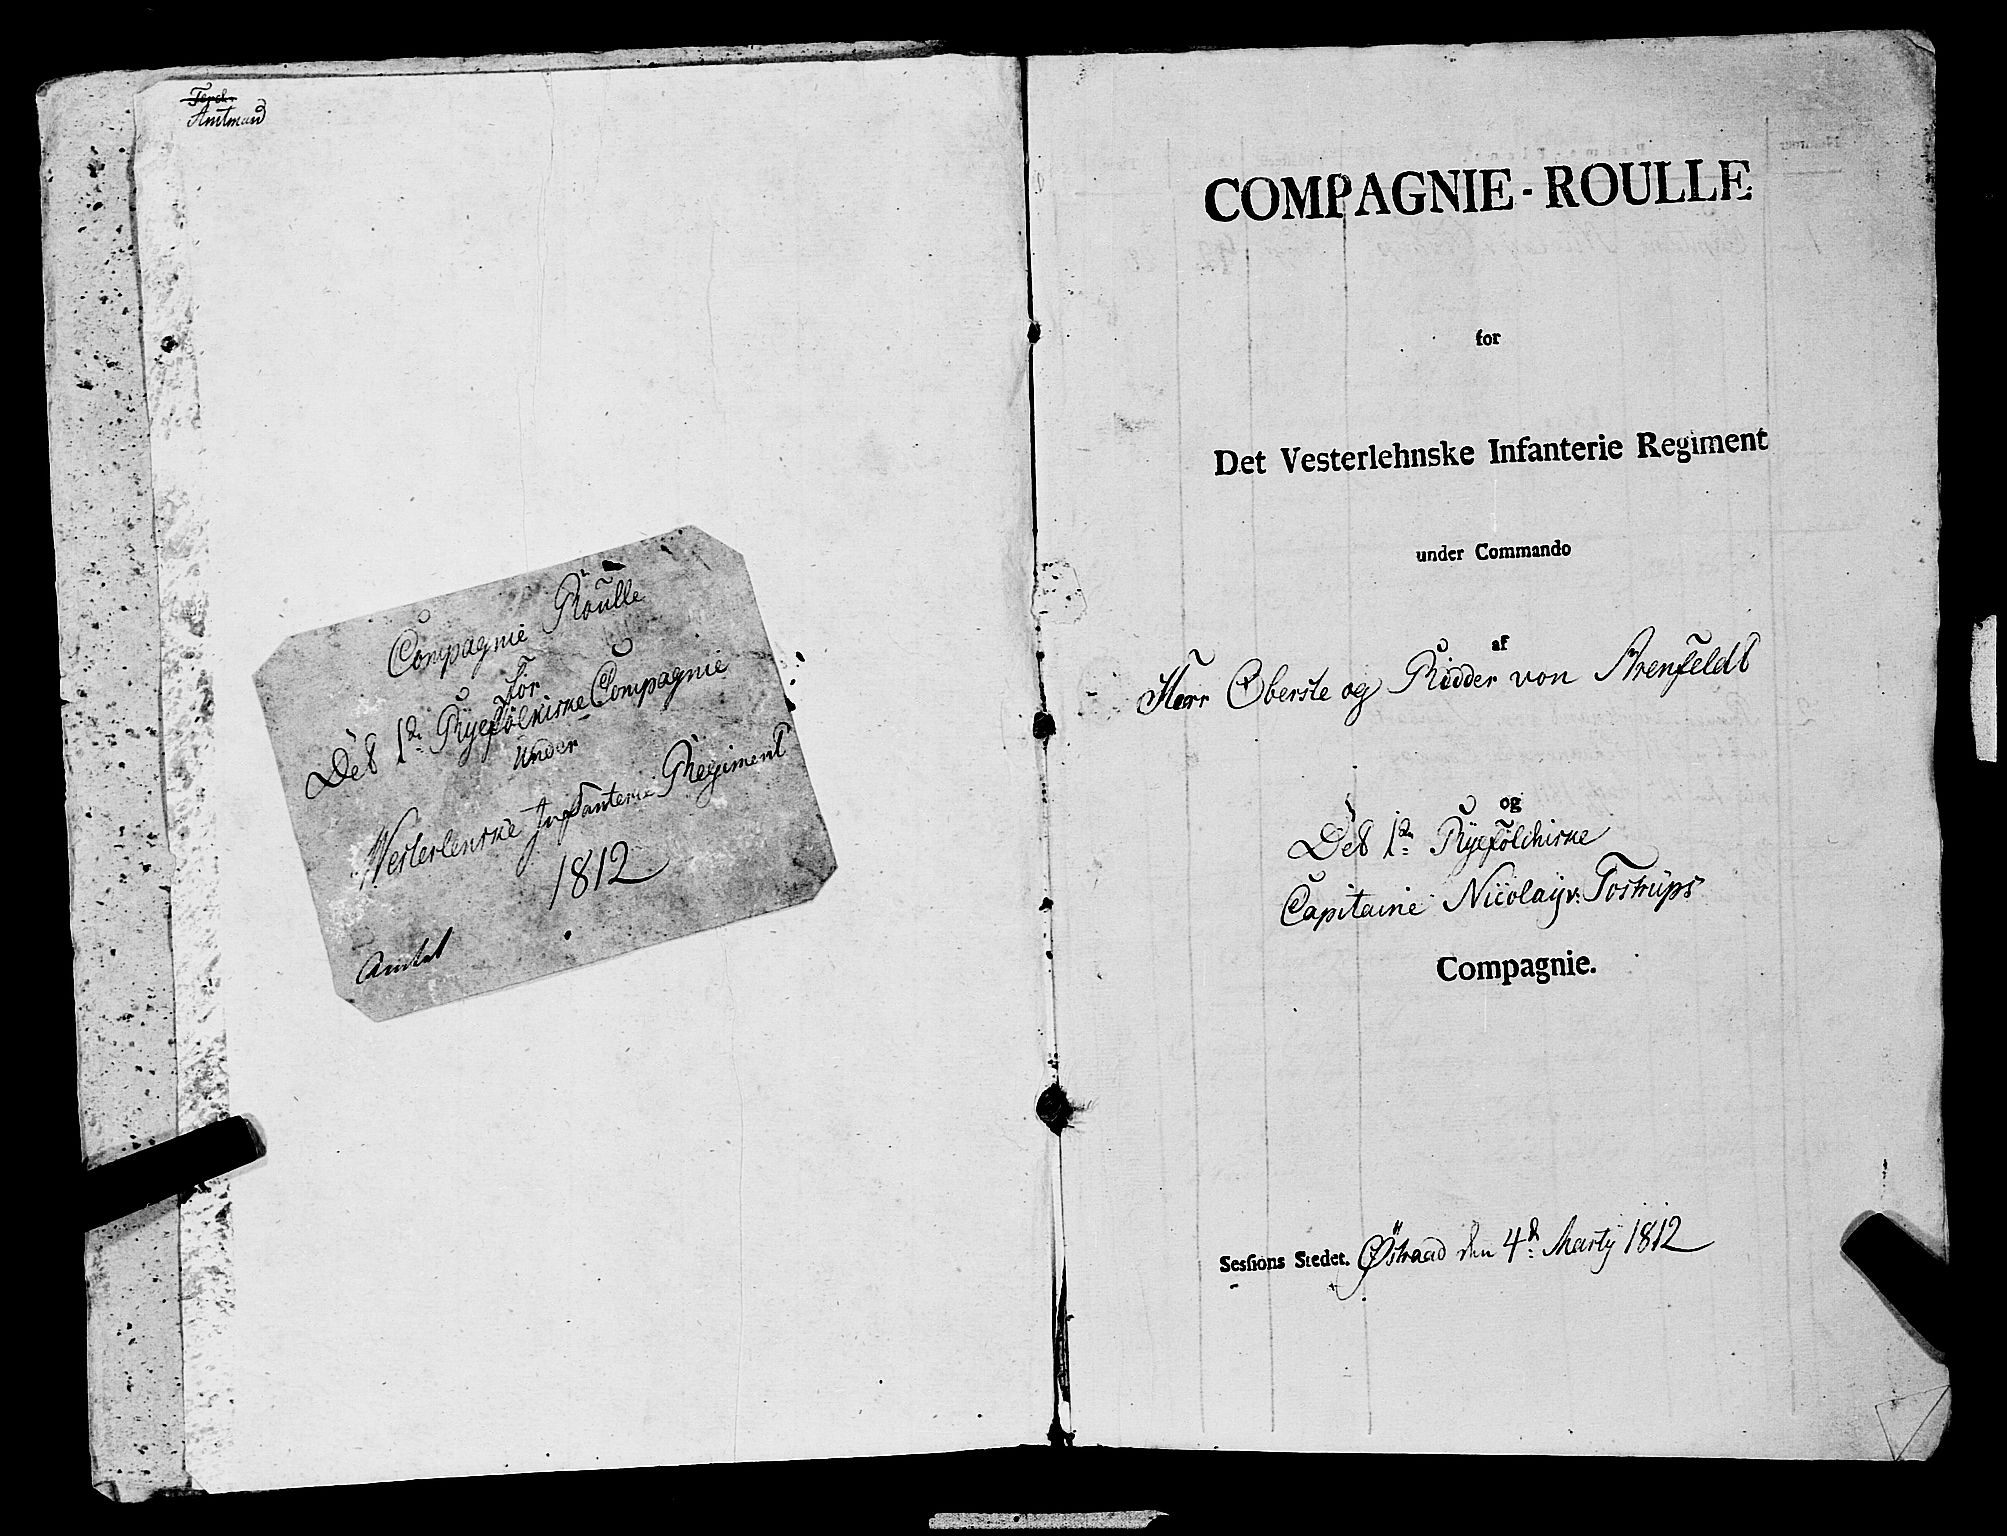 Amtmand
Compagnie Roulle
for
Det 1de Ryefølkiske Compagnie
under
Westerlenske Infanterie Regiment
1812
Amtet
COMPAGNIE-ROULLE
for
Det Vesterlehnske Infanterie Regiment
under Commando
af
Herr Oberste og Ridder von Arenfeldt
og
Det 1de Ryefølchiske
Capitaine Nicolay v: Tostrups
Compagnie.
Sessions Stedet. Østraad den 4de Marty 1812